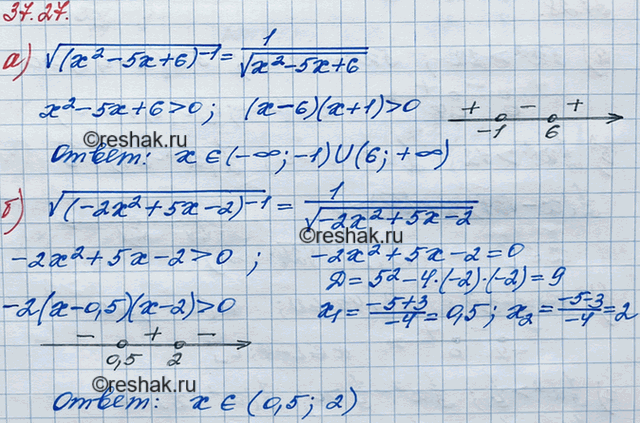 37.27.
а) √((x²-5x+6)⁻¹) = 1/√(x²-5x+6)
x²-5x+6>0; (x-6)(x+1)>0 + - +
-1 6
©reshak.ru
Ответ: x∈(-∞;-1)∪(6;+∞)
б) √((-2x²+5x-2)⁻¹) = 1/√(-2x²+5x-2)
©reshak.ru
-2x²+5x-2>0; -2x²+5x-2=0
Д=5²-4·(-2)·(-2)=9
-2(x-0,5)(x-2)>0 x₁=(-5+3)/-4=0,5; x₂=(-5-3)/-4=2
- + -
0,5 2
©reshak.ru
Ответ: x∈(0,5; 2)